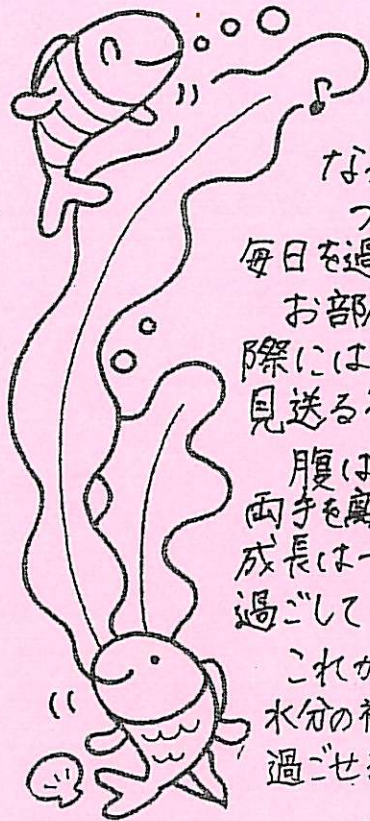 なっ
つ
毎日を過
お部
際には
見送る
腹は
両手を離
成長は一
過ごして
これか
水分の補
過ごせ